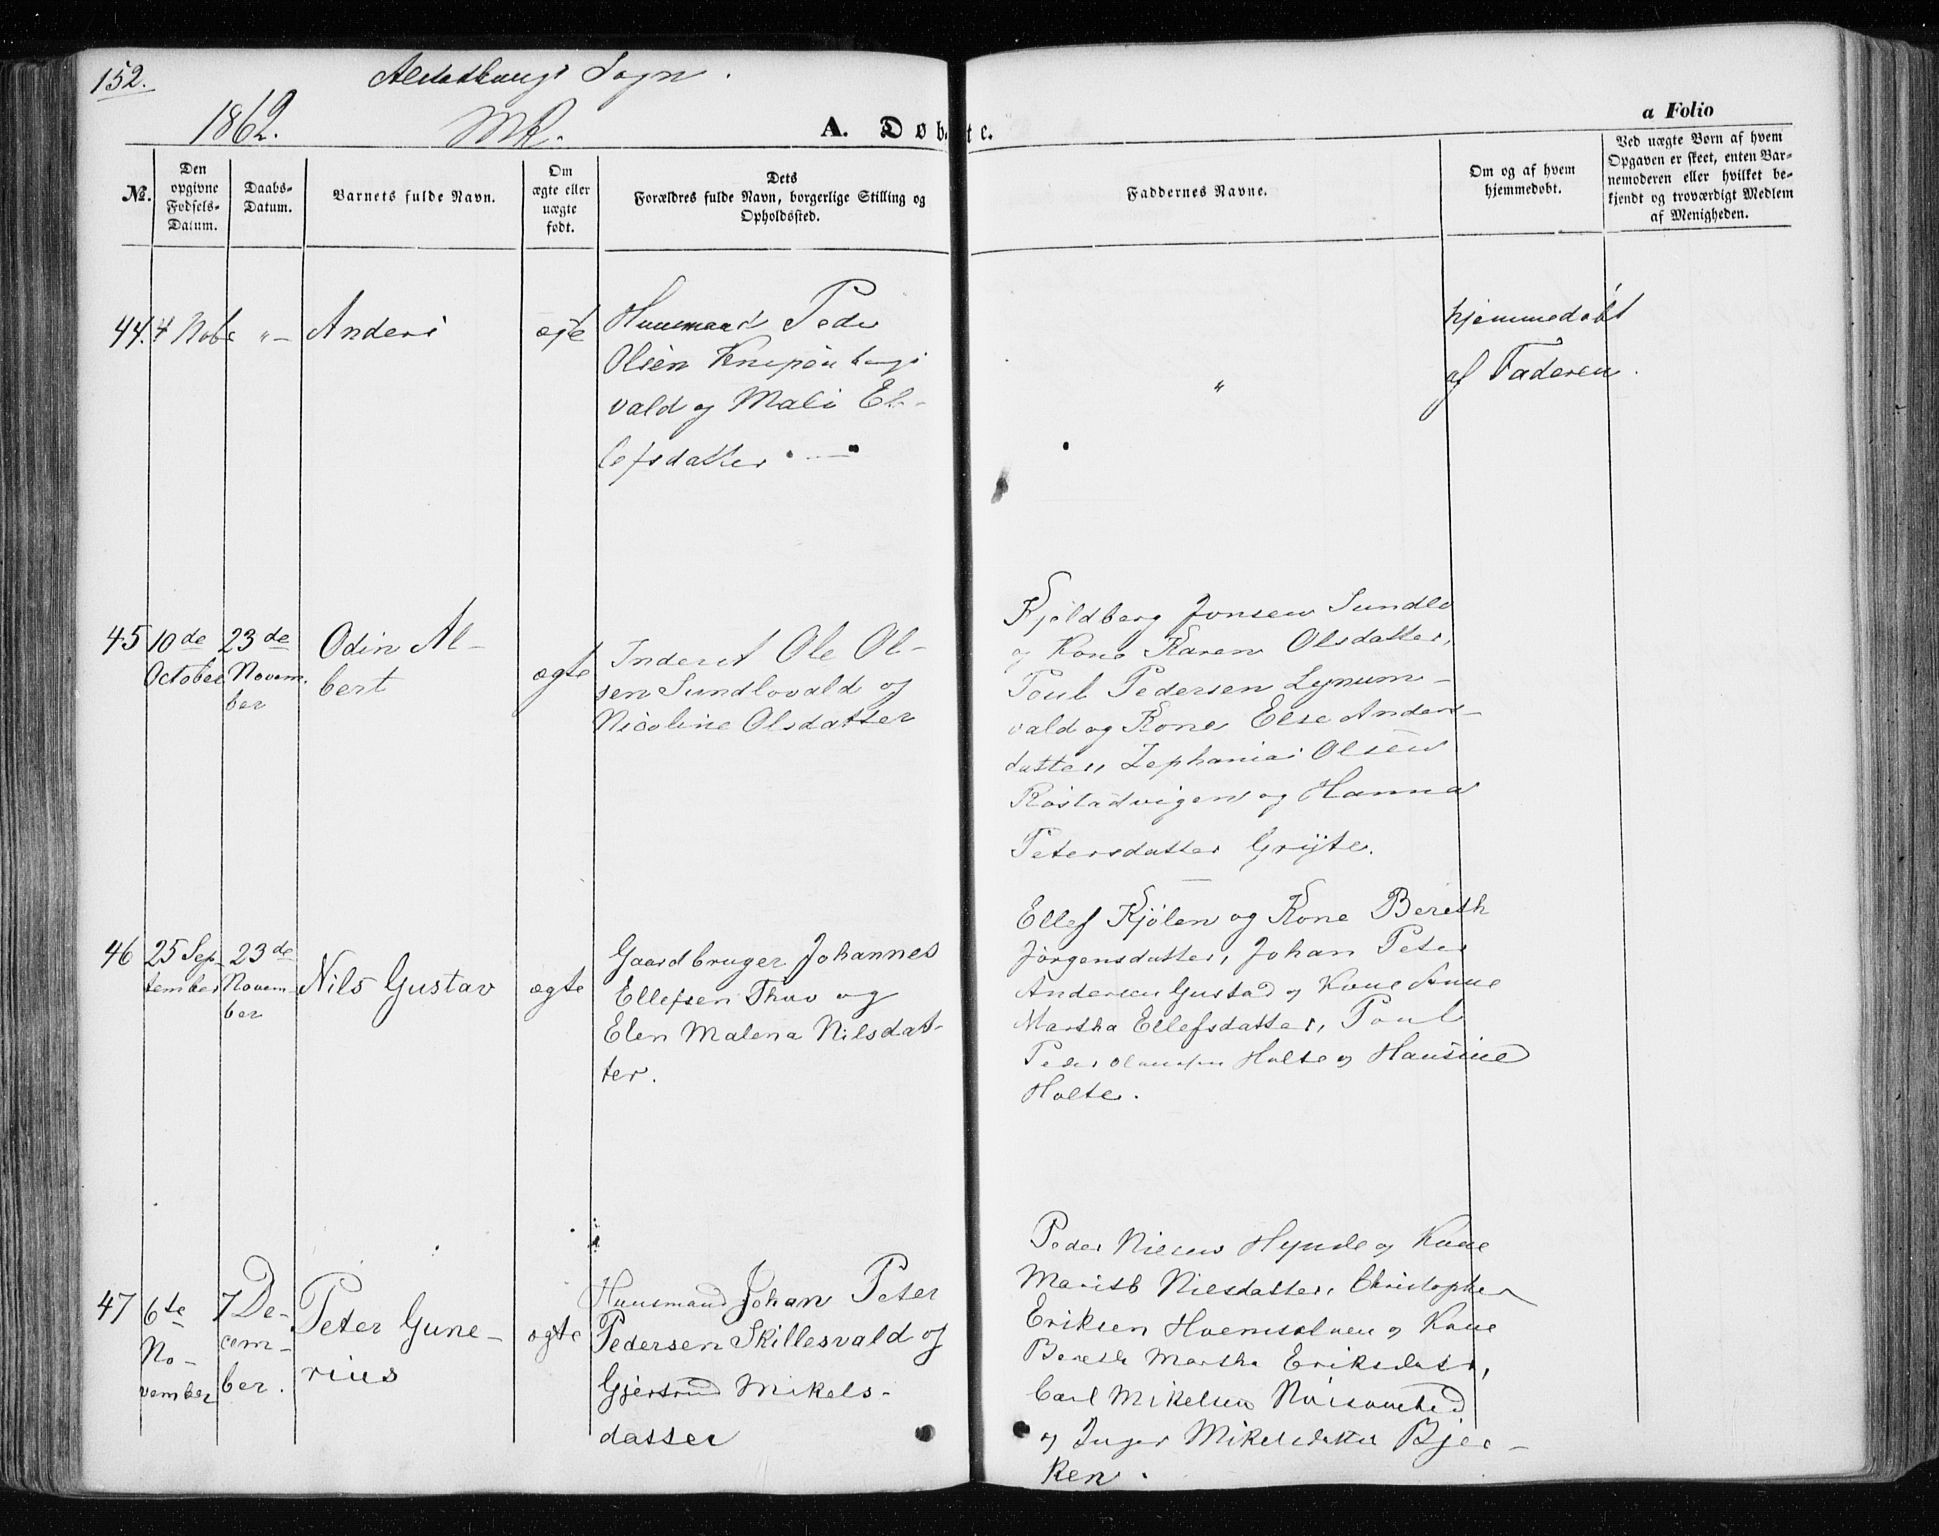 152.
Alstadhaugs Sogn.
1862.
MK.
A. Døbte.
a Folio
No.
Den opgivne Fødsels-Datum.
Daabs-Datum.
Barnets fulde Navn.
Om ægte eller uægte født.
Dets Forældres fulde Navn, borgerlige Stilling og Opholdssted.
Faddernes Navne.
Om og af hvem hjemmedøbt.
Ved uægte Børn af hvem Opgaven er skeet, enten Barnemoderen eller hvilket bekjendt og troværdigt Medlem af Menigheden.
44. 4 Nobr "— Anders ægte
Huusmand Peder
Olsen
vald og Mali El-
lefsdatter
"
hjemmedøbt
af Faderen.
45 10de October 23de November Odin Albert ægte
Inderst Ole Ol-
sen Sundlovald og
Nicoline Olsdatter
Kjeldberg Jonsen Sundlo
og Kone Karen Olsdatter,
Poul Pedersen Lynum-
vald og Kone Else Anders-
datter, Zephanias Olsen
Røstadvigen og Hanna
Petersdatter Grÿte.
46 25 September 23de November Nils Gustav ægte
Gaardbruger Johannes
Ellefsen Thuv og
Elen Malena Nilsdat-
ter.
Ellef Kjølen og Kone Bereth
Jørgensdatter, Johan Peter
Andersen Gustad og Kone Anne
Martha Ellefsdatter, Poul
Peder Holte og Hansine
Holte.
47 6te November 7 December. Peter Gunerius ægte
Huusmand Johan Peter
Pedersen Skillesvald og
Gjertrud Mikels-
datter
Peder Nilsen Hynde og Kone
Marith Nilsdatter, Christopher
Eriksen og Kone
Bereth Martha Eriksdatr,
Carl Mikelsen
og Inger Mikelsdatter Bjer-
ken.